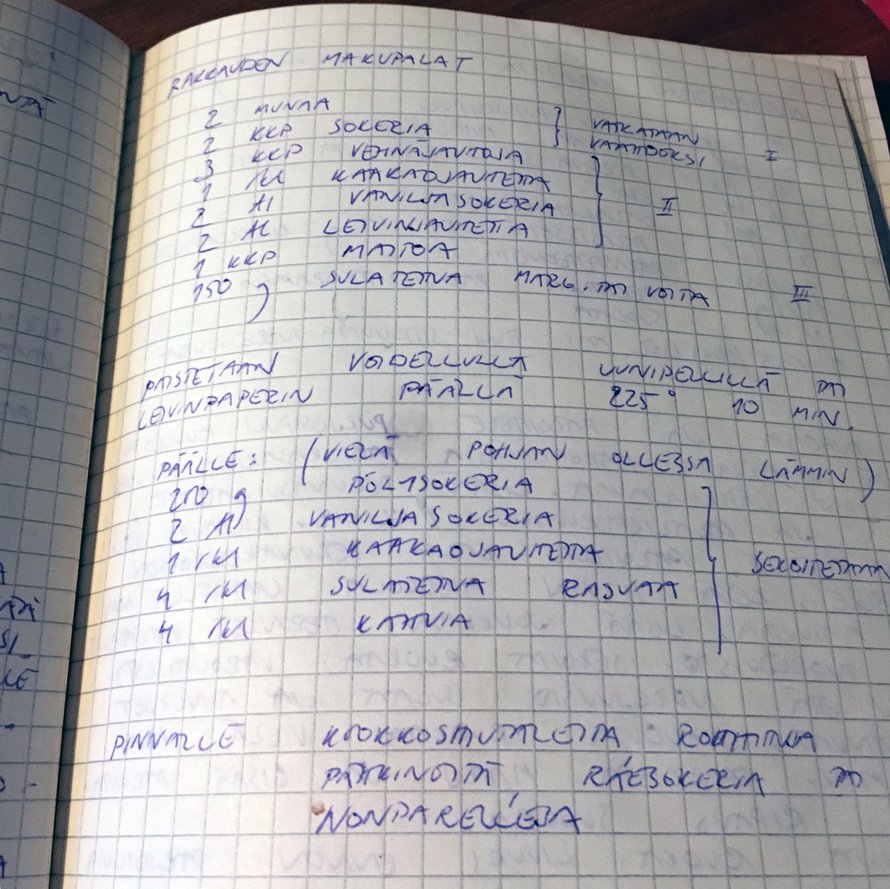 NTÄ
RAKKAUDEN MAKUPALAT
2 MUNAA
2 KKP SOKERIA } VATKATAAN VAAHDOKSI I
3 KKP VEHNÄJAUHOJA
1 rkl KAAKAOJAUHETTA
2 tl VANILJASOKERIA } II
2 tl LEIVINJAUHETTA
1 KKP MAITOA
150 g SULATETTUA MARG. TAI VOITA III
PAISTETAAN VOIDELLULLA UUNIPELLILLÄ TAI
LEIVINPAPERIN PÄÄLLÄ 225° 10 MIN.
PÄÄLLE: (VIELÄ POHJAN OLLESSA LÄMMIN)
200 g PÖLYSOKERIA
2 tl VANILJASOKERIA
1 rkl KAAKAOJAUHETTA } SEKOITETAAN
4 rkl SULATETTUA RASVAA
4 rkl KAHVIA
PINNALLE KOOKKOSHIUTALEITA ROUHITTUJA
PÄHKINÖITÄ RAESOKERIA TAI
NONPARELLEJA